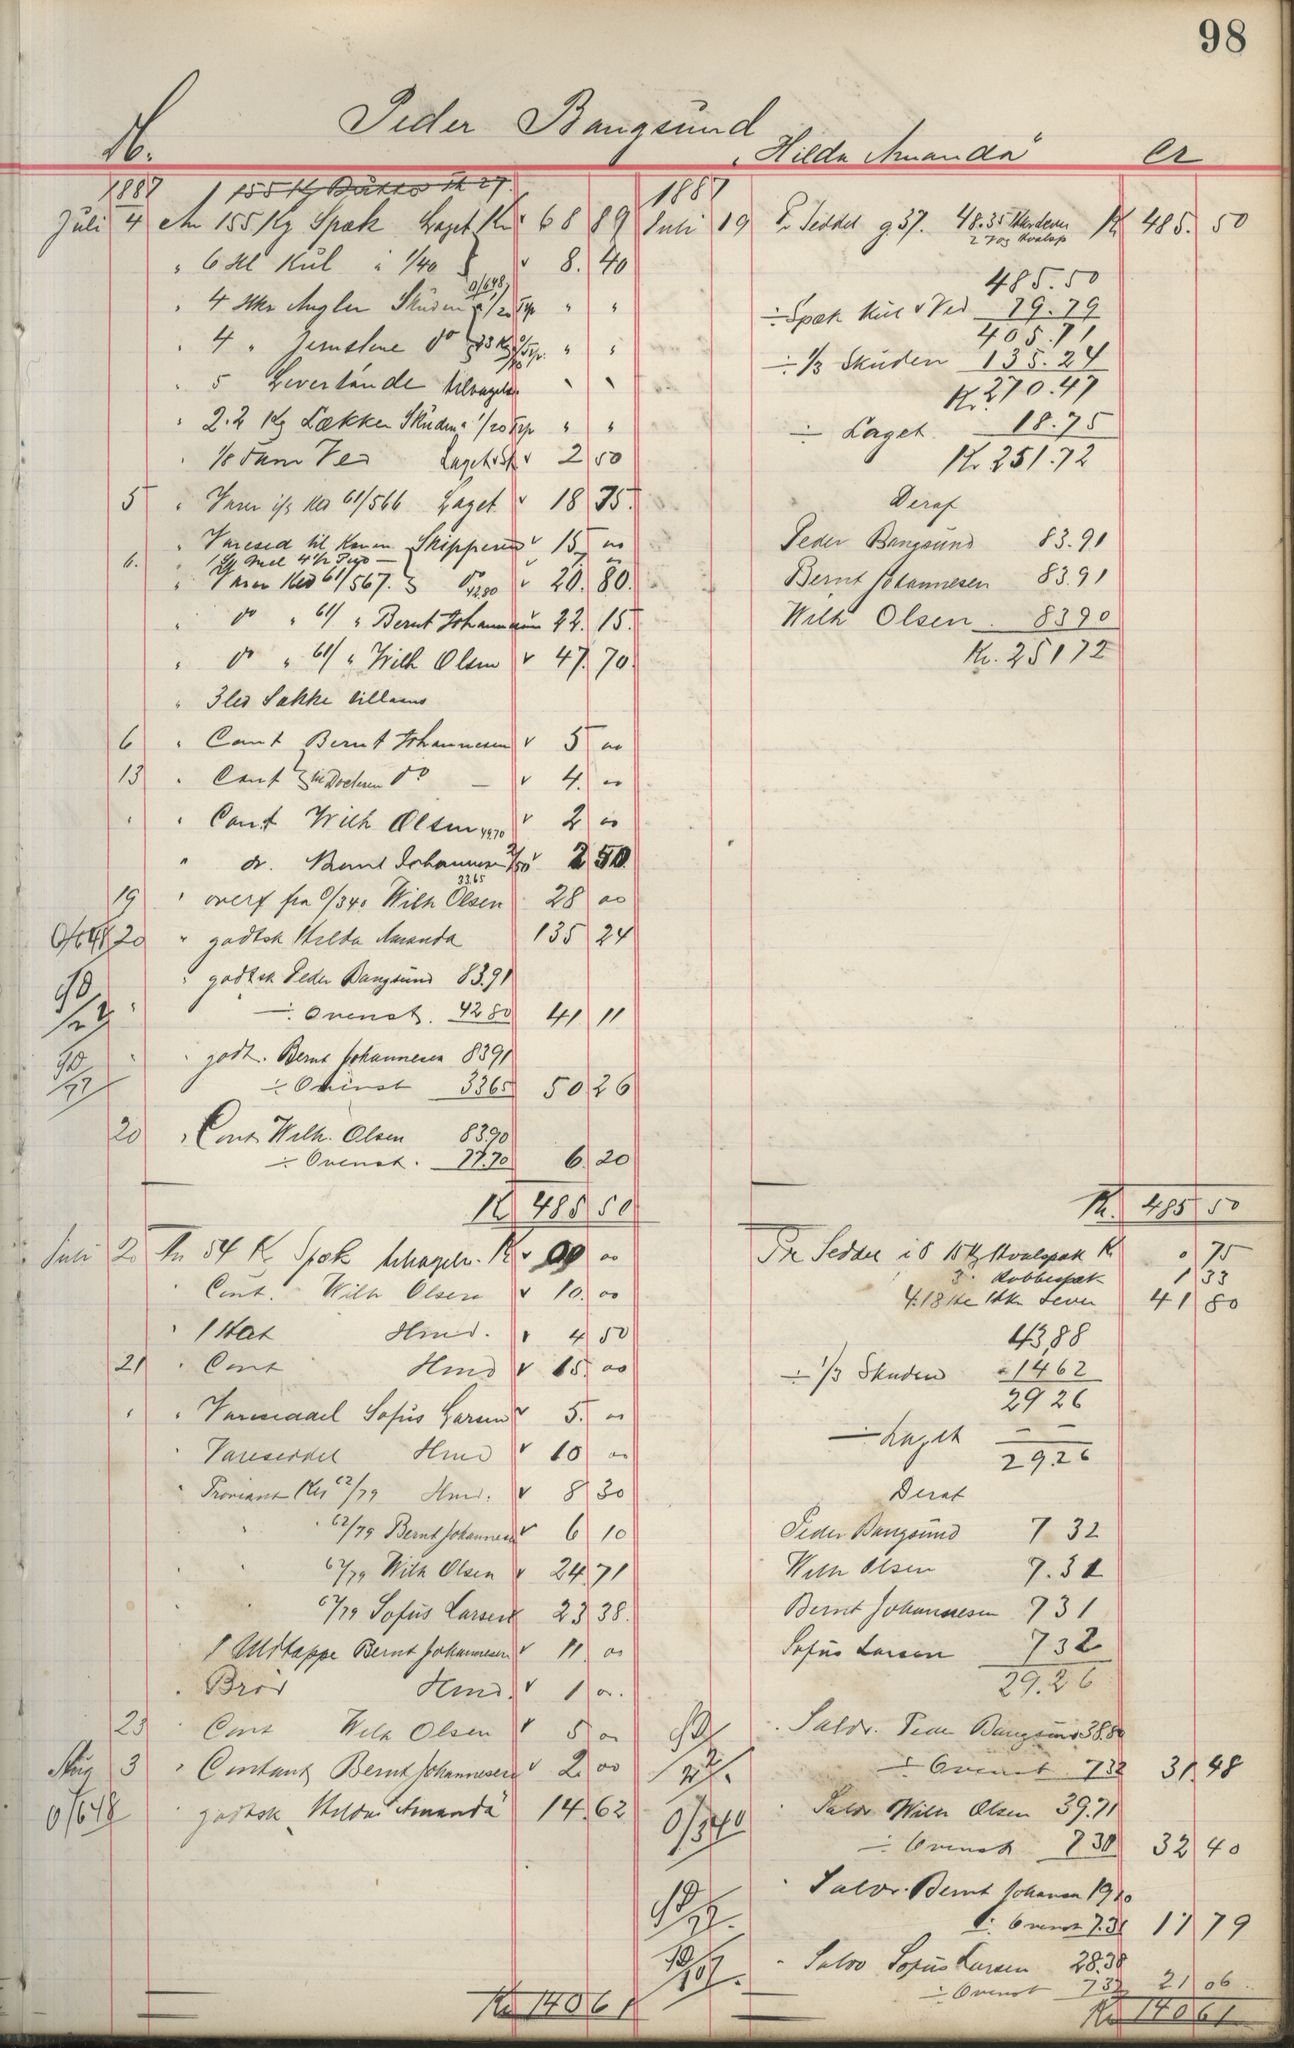 98
Peder Bangsund
"Hilda Amanda"
Cr
1887
4 An 155 Kg Spæk Laget Kr 68 89
" 6 Hl Kul a 1/40 8. 40
" 4 Angler Skuden 0/648 " "
" 4 " Jernstene do " "
" 5 Levertønde
" 2.2 Kg Lækker Skuden 1/20 " "
1/8 Favn Ved Laget 2 50
5 " Varer Kld 61/566 Laget 18 75
" Varesed til Konen Skipperen 15 00
6. " Varer Kld 61/567. do 42.80 20. 80.
" do " 61/ " Bernt Johannesen 22. 15.
" do " 61/ " Wilh Olsen 47. 70.
" 3 Sække tillaans
6 " Cont Bernt Johannesen 5 00
13 " Cont do 4. 00
" " Cont Wilh Olsen 49.70 2 00
" do. Bernt Johannesen 2/50 2 50
33.65
19 " overf fra 0/340 Wilh Olsen 28 00
0/648 20 " godtsk Hilda Amanda 135 24
" godtsk Peder Bangsund 83.91
÷ Ovenst. 42 80 41 11
" godt. Bernt Johannesen 8391
÷ Ovenst 3365 50 26
20 " Cont Wilh. Olsen 83.90
÷ Ovenst. 77.70 6. 20
Kr 485 50
Juli 2 An 54 K. Spæk Kr 00
" Cont. Wilh Olsen 10. 00
" 1 Hat Hmd. 4 50
21 " Cont Hmd 15. 00
" " Vareseddel Sofus Larsen 5. 00
" Vareseddel Hmd 10 00
" Proviant Kld 62/79 Hmd. 8 30
" " 62/79 Bernt Johannesen 6 10
" " 62/79 Wilh Olsen 24. 71
" " 62/79 Sofus Larsen 23 38.
Bernt Johannesen 11. 00
" Brød Hmd. 1 00.
23 " Cont Wilh Olsen 5 00
Aug 3 " Contant Bernt Johannesen 2. 00
0/648 " godtsk "Hilda Amanda" 14. 62
Kr 140 61
1887
Juli 19 Pr Seddel g 37. Kr 485. 50
485.50
÷ Spæk Kul & Ved 79.79
405.71
÷ 1/3 Skuden 135.24
Kr. 270.47
÷ Laget 18.75
Kr 251.72
Deraf
Peder Bangsund 83.91
Bernt Johannesen 83.91
Wilh Olsen 8390
Kr. 25172
Kr. 485 50
Pr Seddel i 8 15 Kg Hvalspæk Kr 0 75
3 " Kobbespæk 1 33
Lever 41 80
43,88
÷ 1/3 Skuden 1462
29 26
÷ Laget — —
29.26
Deraf
Peder Bangsund 7 32
Wilh Olsen 7.31
Bernt Johannesen 7 31
Sofus Larsen 7 32
29.26
" Saldo. Peder Bangsund 38.80
÷ Ovenst 732 31. 48
0/340 " Saldo Wilh Olsen 39.71
÷ Ovenst 731 32 40
" Saldo. Bernt Johansen 1910
÷ Ovenst 7.31 11 79
" Saldo Sofus Larsen 28.38
÷ Ovenst 732 21 06
Kr 140 61